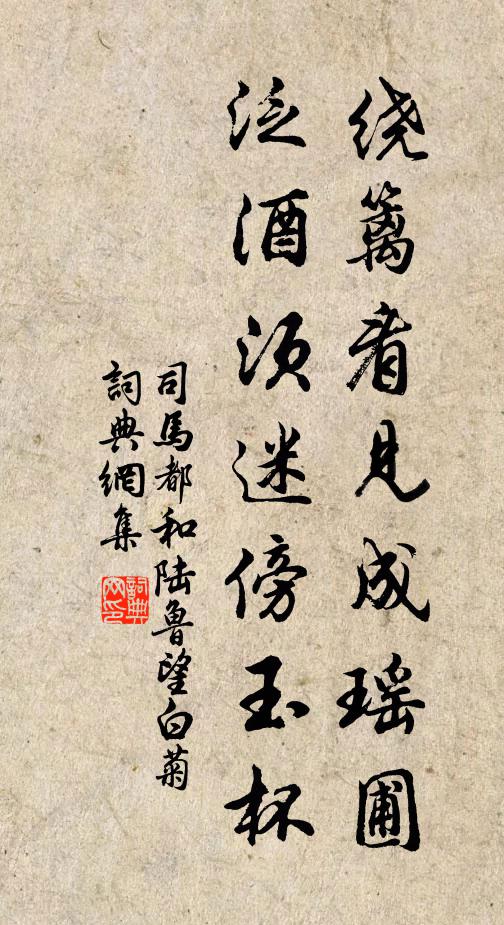 绕篱看见成瑶圃
泛酒须迷傍玉杯
司馬都和陆魯望白菊
詞典網集
詞典网印